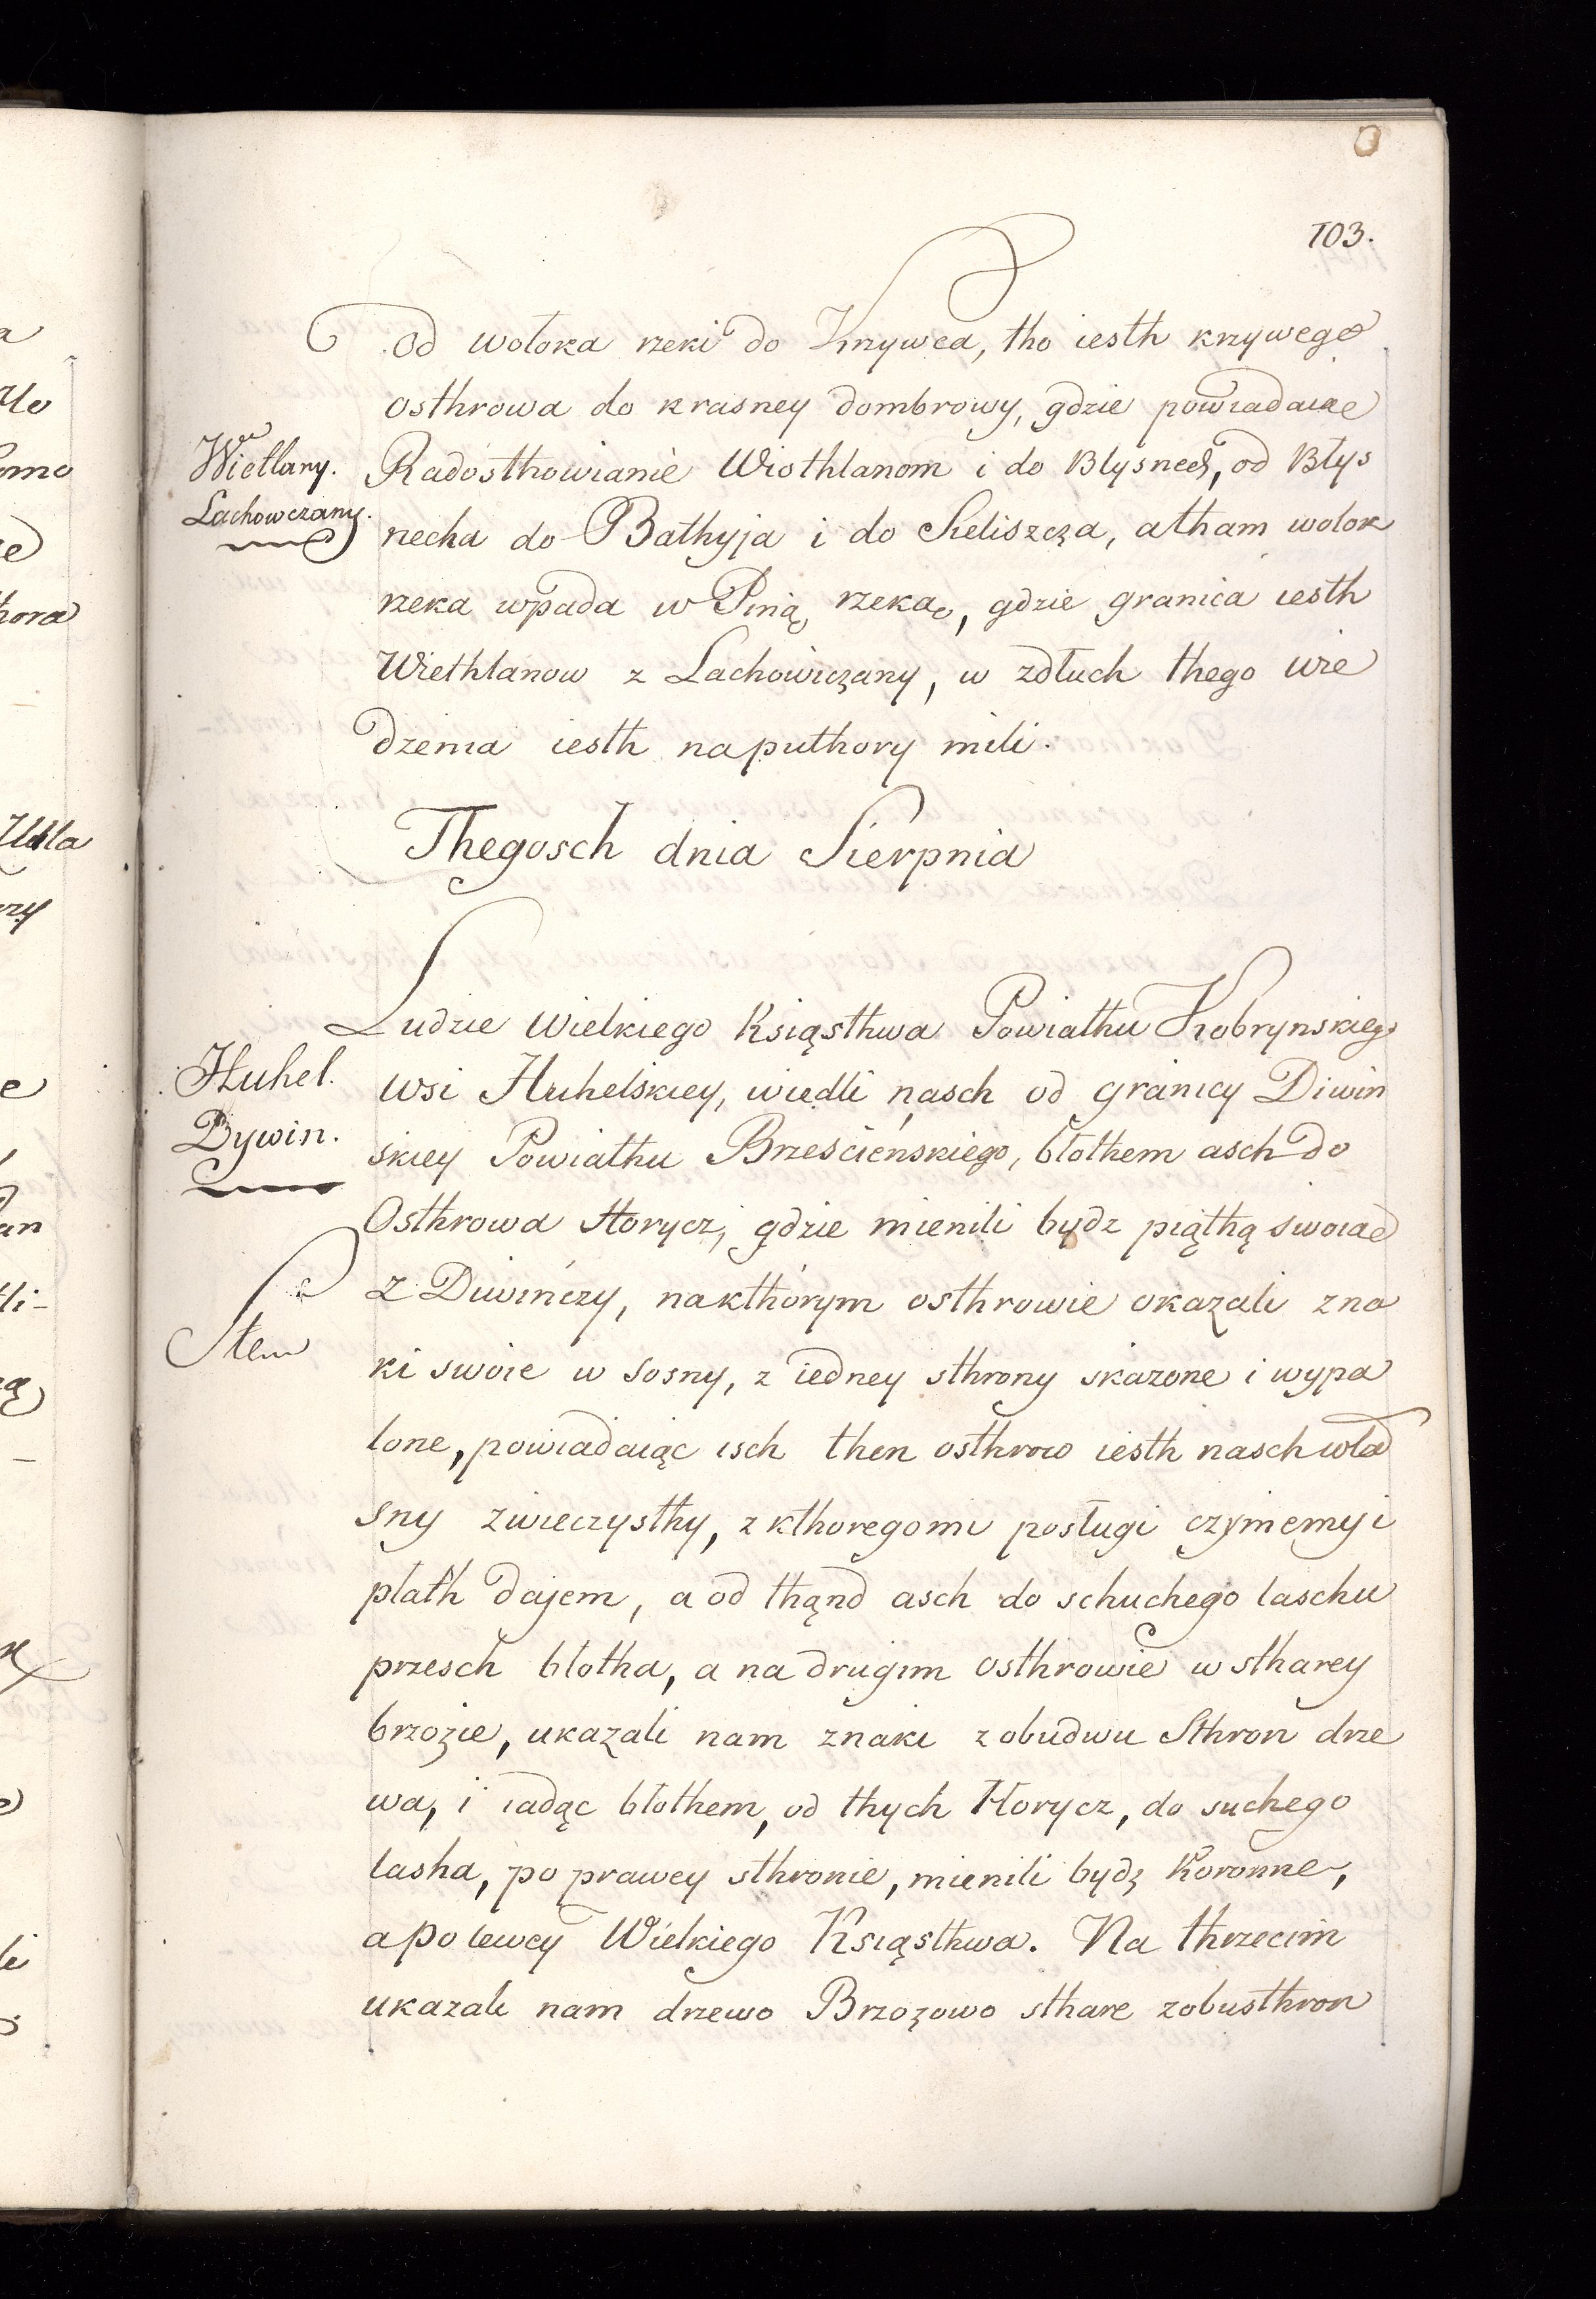 103.
od wołoka rzeki do Krzywca, tho iesth krzywego
osthrowa do krasney dombrowy, gdzie powiadaiąc
Wietlany. Radosthowianie Wiothlanom i do Błysnech, od Błys
Lachowczany. necha do Bathyja i do Sieliszcza, atham wolok
rzeka wpada w Piną rzeką, gdzie granica iesth
Wiethlanow z Lachowiczany, w zdłuch thego wie
dzenia iesth naputhory mili.
Thegosch dnia Sierpnia
Ludzie Wielkiego Ksiąsthwa Powiathu Kobrynskiego
Huhel. wsi Huhelskiey, wiedli nasch od granicy Diwin
Dywin. skiey Powiathu Brzescienskiego, błothem asch do
Osthrowa Horycz, gdzie mienili bydz piąthą swoiae
z Diwinczy, nakthórym osthrowie okazali zna
ki swoie w sosny, z iedney sthrony skazone i wypa
lone, powiadaiąc isch then osthrow iesth nasch wła
sny zwieczysthy, z kthoregomi posługi czyniemy i
płath dajem, a od thąnd asch do schuchego laschu
przesch błotha, a na drugim osthrowie w stharey
brzozie, ukazali nam znaki z obudwu Sthron drze
wa, i iadąc błothem, od thych Horycz, do suchego
lasha, po prawey sthronie, mienili bydz Koronne,
a po lewey Wielkiego Ksiąsthwa. Na thrzecim
ukazali nam drzewo Brzozowo sthare zobusthron